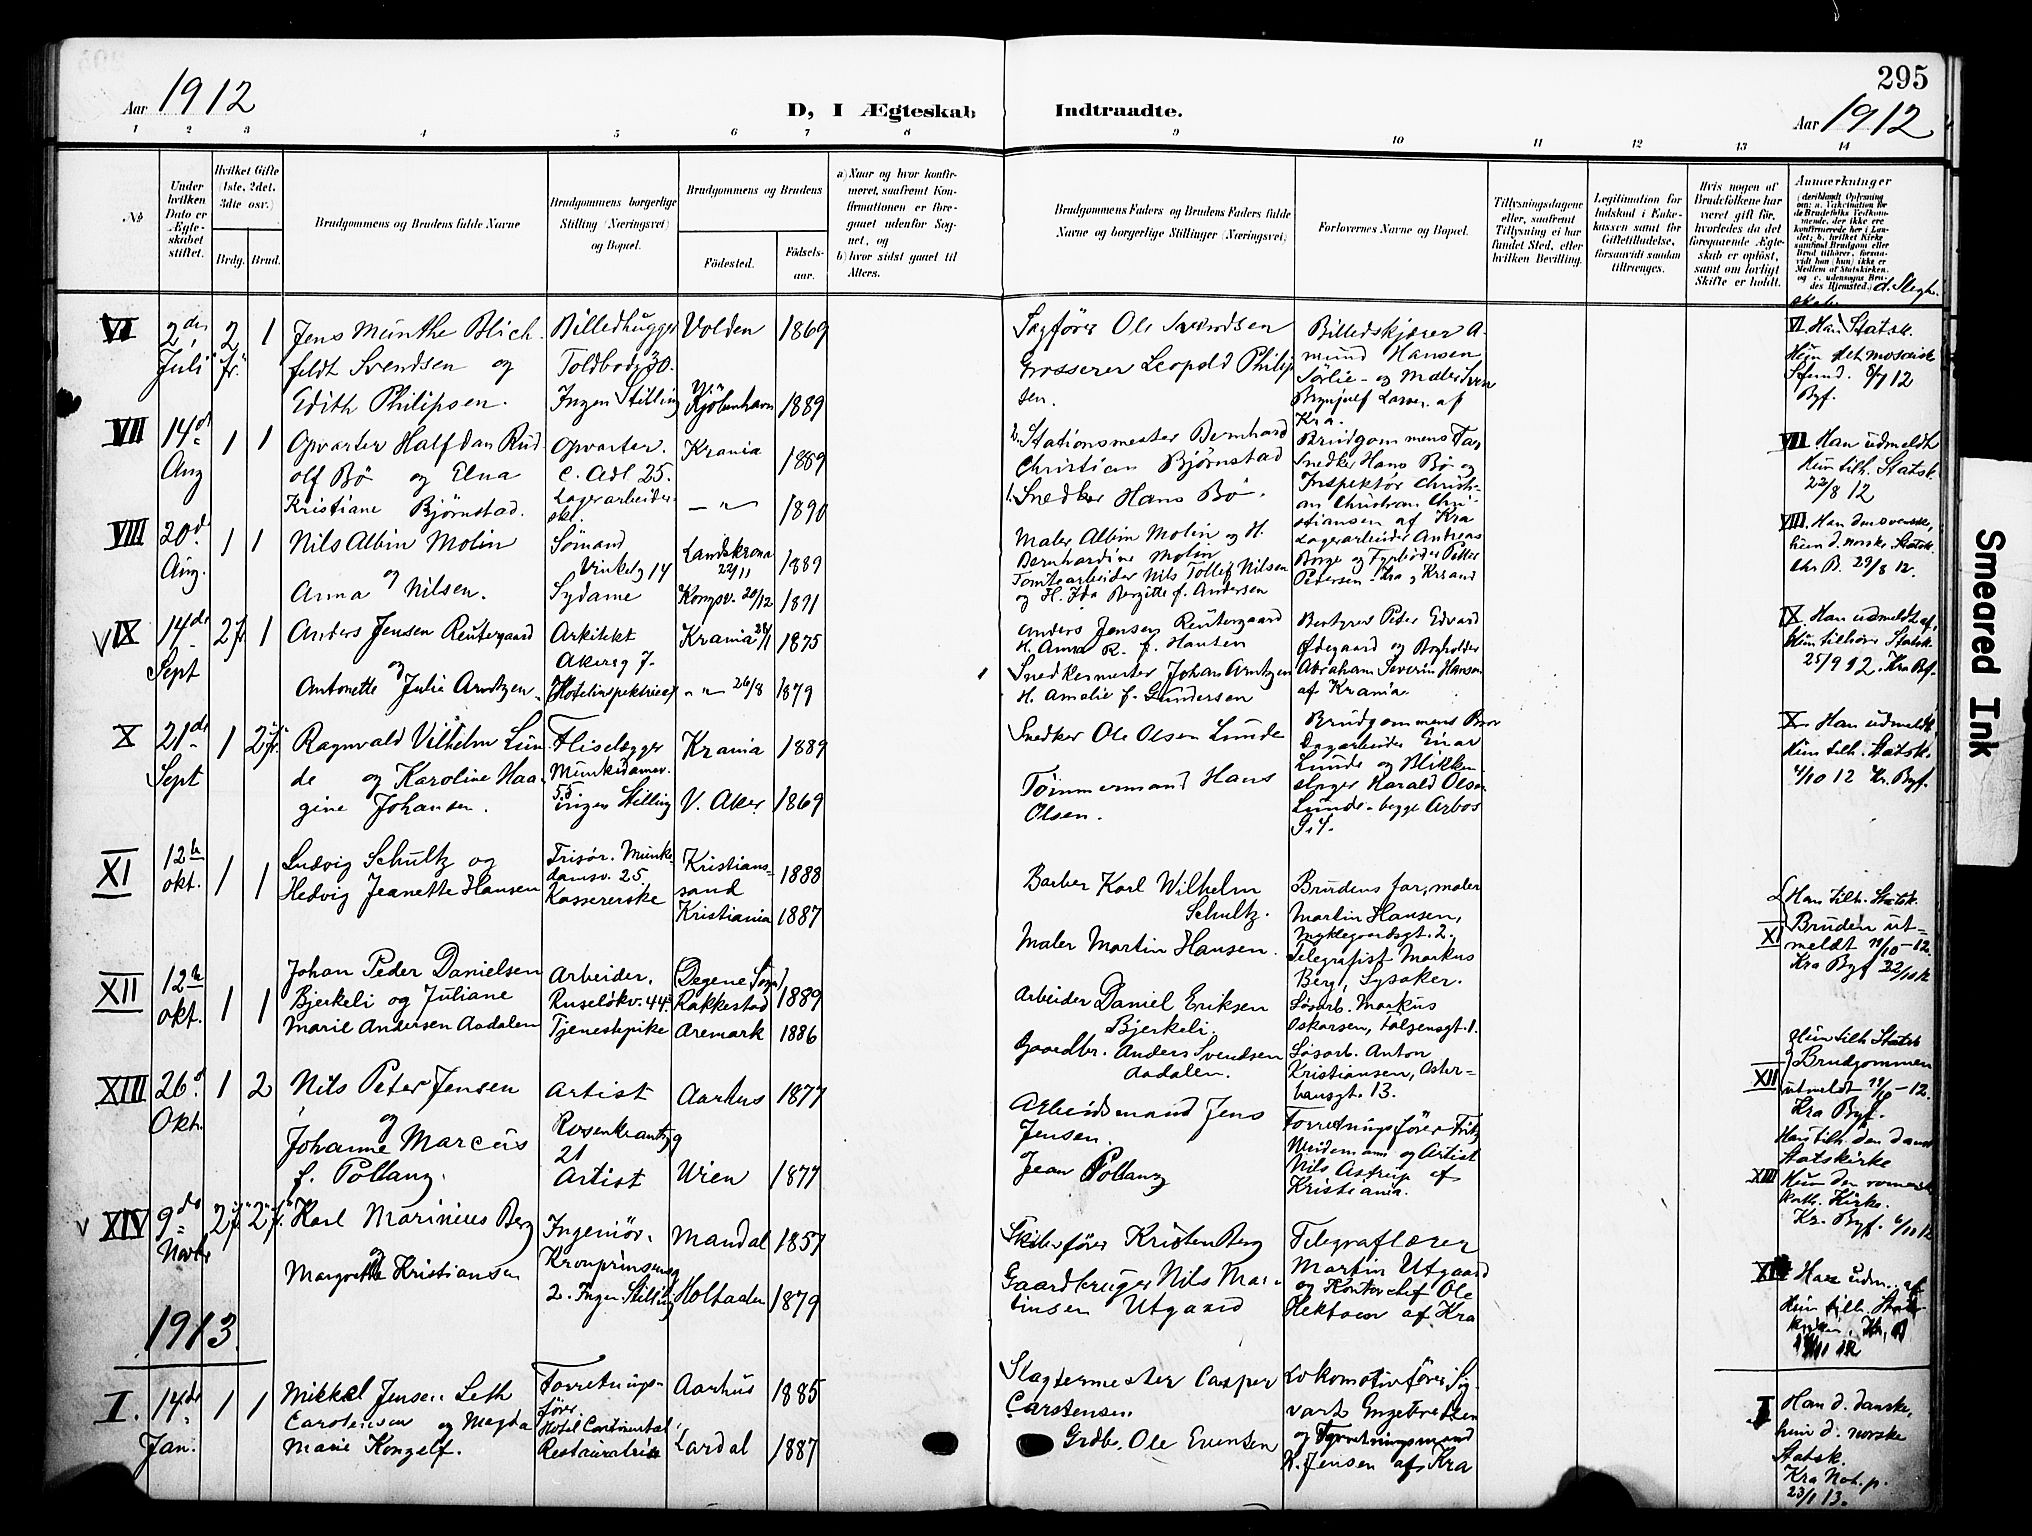 295
Aar 1912
D, I Ægteskab Indtraadte.
Aar 1912
1 2 3 4 5 6 7 8 9 10 11 12 13 14
No
Under hvilken Dato er Ægteskabet stiftet.
Hvilket Gifte (1ste, 2det, 3dte osv.)
Brdg. Brud.
Brudgommens og Brudens fulde Navne
Brudgommens borgerlige Stilling (Næringsvei) og Bopæl.
Brudgommens og Brudens
Fødested. Fødsels-aar.
a) Naar og hvor konfirmeret, saafremt Konfirmationen er foregaaet udenfor Sognet, og
b) hvor sidst gaaet til Alters.
Brudgommens Faders og Brudens Faders fulde Navne og borgerlige Stillinger (Næringsvei)
Forlovernes Navne og Bopæl.
Tillysningsdagene eller, saafremt Tillysning ei har fundet Sted, efter hvilken Bevilling.
Legitimation for Indskud i Enkekassen samt for Giftetilladelse, forsaavidt saadan tiltrænges.
Hvis nogen af Brudefolkene har været gift før, hvorledes da det foregaaende Ægteskab er opløst, samt om lovligt Skifte er holdt.
Anmærkninger
VI 2den Juli 2 fr. 1
Jens Munthe Blich
feldt Svendsen og
Edith Philipsen.
Billedhugger
Toldbodg 30.
Ingen Stilling
Volden 1869
Kjöbenhavn 1889
Sagförer Ole Svendsen
Grosserer Leopold Philip
sen.
Billedskjærer A-
mund Hansen
Sörlie - og Maler Sven
Brynjulf Larsen af
Kra.
VI. Han Statsk.
Hun det mosaiske
Sfund. 8/7 12
Byf.
VII 14de Aug 1 1
Opvarter Halfdan Rud
olf Bø og Elna
Kristiane Bjørnstad.
Opvarter.
C. Adl 25.
Lagerarbeider-
ske.
Krania 1889
— " — 1890
2. Stationsmester Bernhard
Christian Bjørnstad
1. Snedker Hans Bö.
Brudgommens Far
Snedker Hans Bø og
Inspektör Christi-
an Christian Chri-
stiansen af Kra
VII Han udmeldt
Hun tilh. Statsk.
22/8 12
VIII 20de Aug. 1 1
Nils Albin Molin
og
Anna Nilsen.
Sømand
Vinkelg 14
Sydame
Landskrona
22/11 1889
Kongsv. 20/12 1891
Maler Albin Molin og H.
Bernhardine Molin
Tomtearbeider Nils Tollef Nilsen
og H. Ida Bergitte f. Andersen
Lagerarbeider Andreas
Borge og Fyrbøder Petter
Petersen - Kra og Krsand
VIII. Han den svenske,
hun d. norske Statsk.
Chr B. 29/8 12.
V IX 14de Sept 2 fr. 1
Anders Jensen Reutergaard
og
Antonette Julie Arntzen.
Arkitekt
Akersg 7.
Hotelinspektrice
Krania 1875
" " 26/8 1879
Anders Jensen Reutergaard
H. Anna R. f. Hansen
Snedkermester Johan Arntzen
H. Amelie f. Gundersen
Bestyrer Peter Edvard
Ødegaard og Bogholder
Abraham Severin Hansen
af Krania.
IX Han udmeldt af,
Hun tilhører Statsk.
25/9 12. Kra Byf.
X 21de Sept 1 2 fr.
Ragnvald Vilhelm Lun
de og Karoline Haa-
gine Johansen.
Fliselægger
Munkedamsv.
55
ingen Stilling
Krania 1889
V. Aker 1869
Snedker Ole Olsen Lunde
Tömmermand Hans
Olsen.
Brudgommens Bror
Dagarbeider Einar
Lunde og Blikken
slager Harald Olsen
Lunde - begge Arbos
G. 4.
X Han udmeldt,
Hun tilh. Statsk.
4/10 12 Kr. Byf.
XI 12te okt. 1 1
Ludvig Schultz og
Hedvig Jeanette Hansen
Frisør. Munke-
damsv. 25
Kassererske
Kristians-
sand 1888
Kristiania 1887
Barber Karl Wilhelm
Schultz.
Maler Martin Hansen.
Brudens far, maler
Martin Hansen,
Myklegaardsgt. 2.
Telegrafist Markus
Berg, Lysaker.
XI
Han tilh. Statsk.
Bruden ut-
meldt 11/10-12.
Kra Byf 22/10 12
XII 12te okt. 1 1
Johan Peder Danielsen
Bjerkeli og Juliane
Marie Andersen Aadalen
Arbeider.
Ruseløkv. 44.
Tjenestepike
(Degene Sogn)
Rakkestad 1889
Aremark 1886
Arbeider Daniel Eriksen
Bjerkeli.
Gaardbr. Anders Svendsen
Aadalen.
Løsarb. Markus
Oskarsen, Falsensgt. 1.
Løsarb. Anton
Kristiansen, Oster-
hausgt. 13.
XII
Hun tilh Statsk
Brudgommen
utmeldt 11/10-12.
Kra Byf.
XIII 26de Okt. 1 2
Nils Peter Jensen
og
Johanne Marcus
f. Pollany.
Artist
Rosenkrantzg
21
Artist
Aarhus 1877
Wien 1877
Arbeidsmand Jens
Jensen.
Jean Pollany
Forretningsfører Fritz
Weidemann og Artist
Nils Astrup af
Kristiania.
XIII
Han tilh. den danske
Statskirke
Hun den romersk
kath. Kirke.
Kr. Byf.
V XIV 9de Novbr 2 fr. 2 fr.
Karl Marinius Berg
og
Margrethe Kristiansen
Ingeniör.
Kronprinsensg
2. Ingen Stilling
Mandal 1857
Holtaalen 1879
Skibsfører Kristen Berg
Gaardbruger Nils Mar-
tinsen Utgaard
Telegraflærer
Martin Utgaard
og Kontorchef Ole
Hektoen af Kra
XIV Han udm. af
Hun tilh. Stats
1913
I. 14de Jan. 1 1
Mikkel Jensen Leth
Carstensen og Magda
Marie Kongelf.
Forretnings-
fører
Hotel Continental
Restauratrice
Aarhus 1885
Lardal 1887
Slagtermester Casper
Carstensen
Grdbr. Ole Evensen
Lokomotivfører Sig-
vart Engebretsen
og Forretningsmand
K. Jensen af Kra
I Han d. danske,
hun d. norske
Statsk.
Kra Not. p.
23/1 13.
Smeared Ink